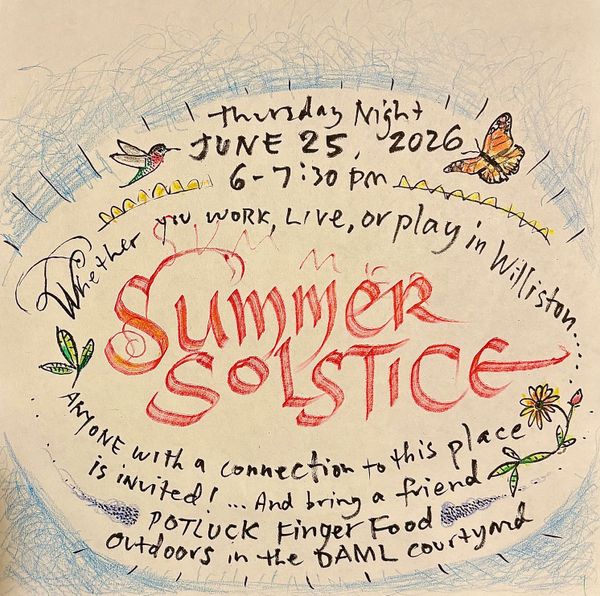 Thursday Night
JUNE 25, 2026
6-7:30 pm
Whether you WORK, LIVE, or play in Williston....
SUMMER
Summer
SOLSTICE
ANYONE with a connection to this place
is invited! ... And bring a friend
POTLUCK Finger Food
Outdoors in the DAML courtyard